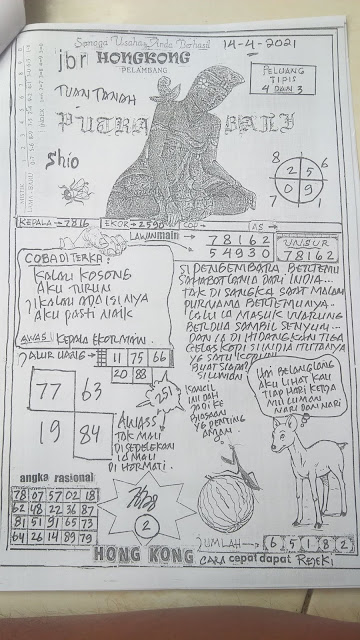 Semoga Usaha Anda Berhasil
14-4-2021
jbr HONGKONG
PELAMBANG
TUAN TANAH
PUTRA BALI
Shio
PELUANG
TIPIS
4 DAN 3
8 1 6
2 5
0 9
7 3
KEPALA → 7816 EKOR → 2590 COP → AS →
LAWAN main
7 8 1 6 2
5 4 9 3 0
UNSUR
78162
COBA DI TERKA:
KALAU KOSONG
AKU TURUN
JIKALAU ADA ISINYA
AKU PASTI NAIK
AWAS KEPALA EKOR MAIN.
SI PENGEMBARA BERTEMU
SAHABAT LAMA DARI INDIA...
TAK DI SANGKA SAAT MALAM
PURNAMA BERTEMUNYA..
LALU IA MASUK WARUNG
BERDUA SAMBIL SENYUM...
DAN IA DI HIDANGKAN TIGA
GELAS KOPI SI INDIA ITU TANYA
YG SATU KOPI
BUAT SIAPA
SILUMAN
JALUR UANG →
11 75 66
20 88
77 63
19 84
251
AWASS
TAK MAU
DI SEPELEKAN
IA MAU
DI HORMATI.
KANCIL
INI DAH
JADI KE
BIASAAN
YG PENTING
AMAN.
HAI BELANG LANG
AKU LIHAT KAU
TIAP HARI KERJA
MU LUMAN
NARI DAN NARI
angka rasional
78 07 57 02 18
62 48 22 36 87
81 51 91 65 73
64 26 14 89 79
2
HONG KONG
JUMLAH → 6 5 1 8 2
CARA cepat dapat REJEKI